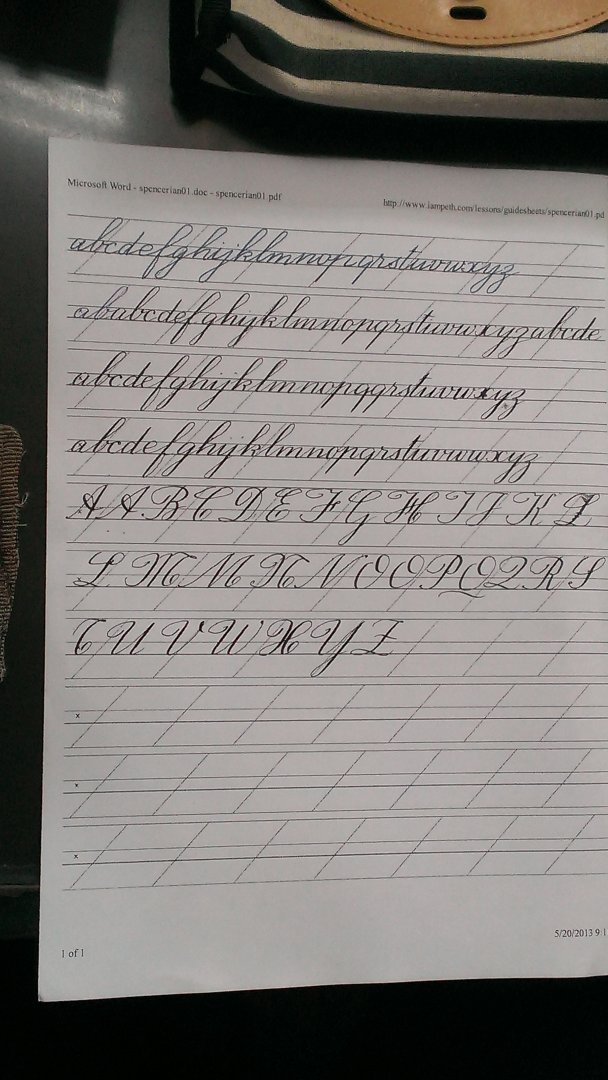 Microsoft Word - spencerian01.doc - spencerian01.pdf
http://www.iampeth.com/lessons/guidesheets/spencerian01.pd
abcdefghijklmnopqrstuvwxyz
ababcdefghijklmnopqrstuvwxyzabcde
abcdefghijklmnopqqrstuvwxyz
abcdefghijklmnopqrstuvwxyz
A A B C D E F G H I J K L
L M M N N O O P Q Q R S
T U V W X Y Z
x
x
x
5/20/2013 9:1
1 of 1